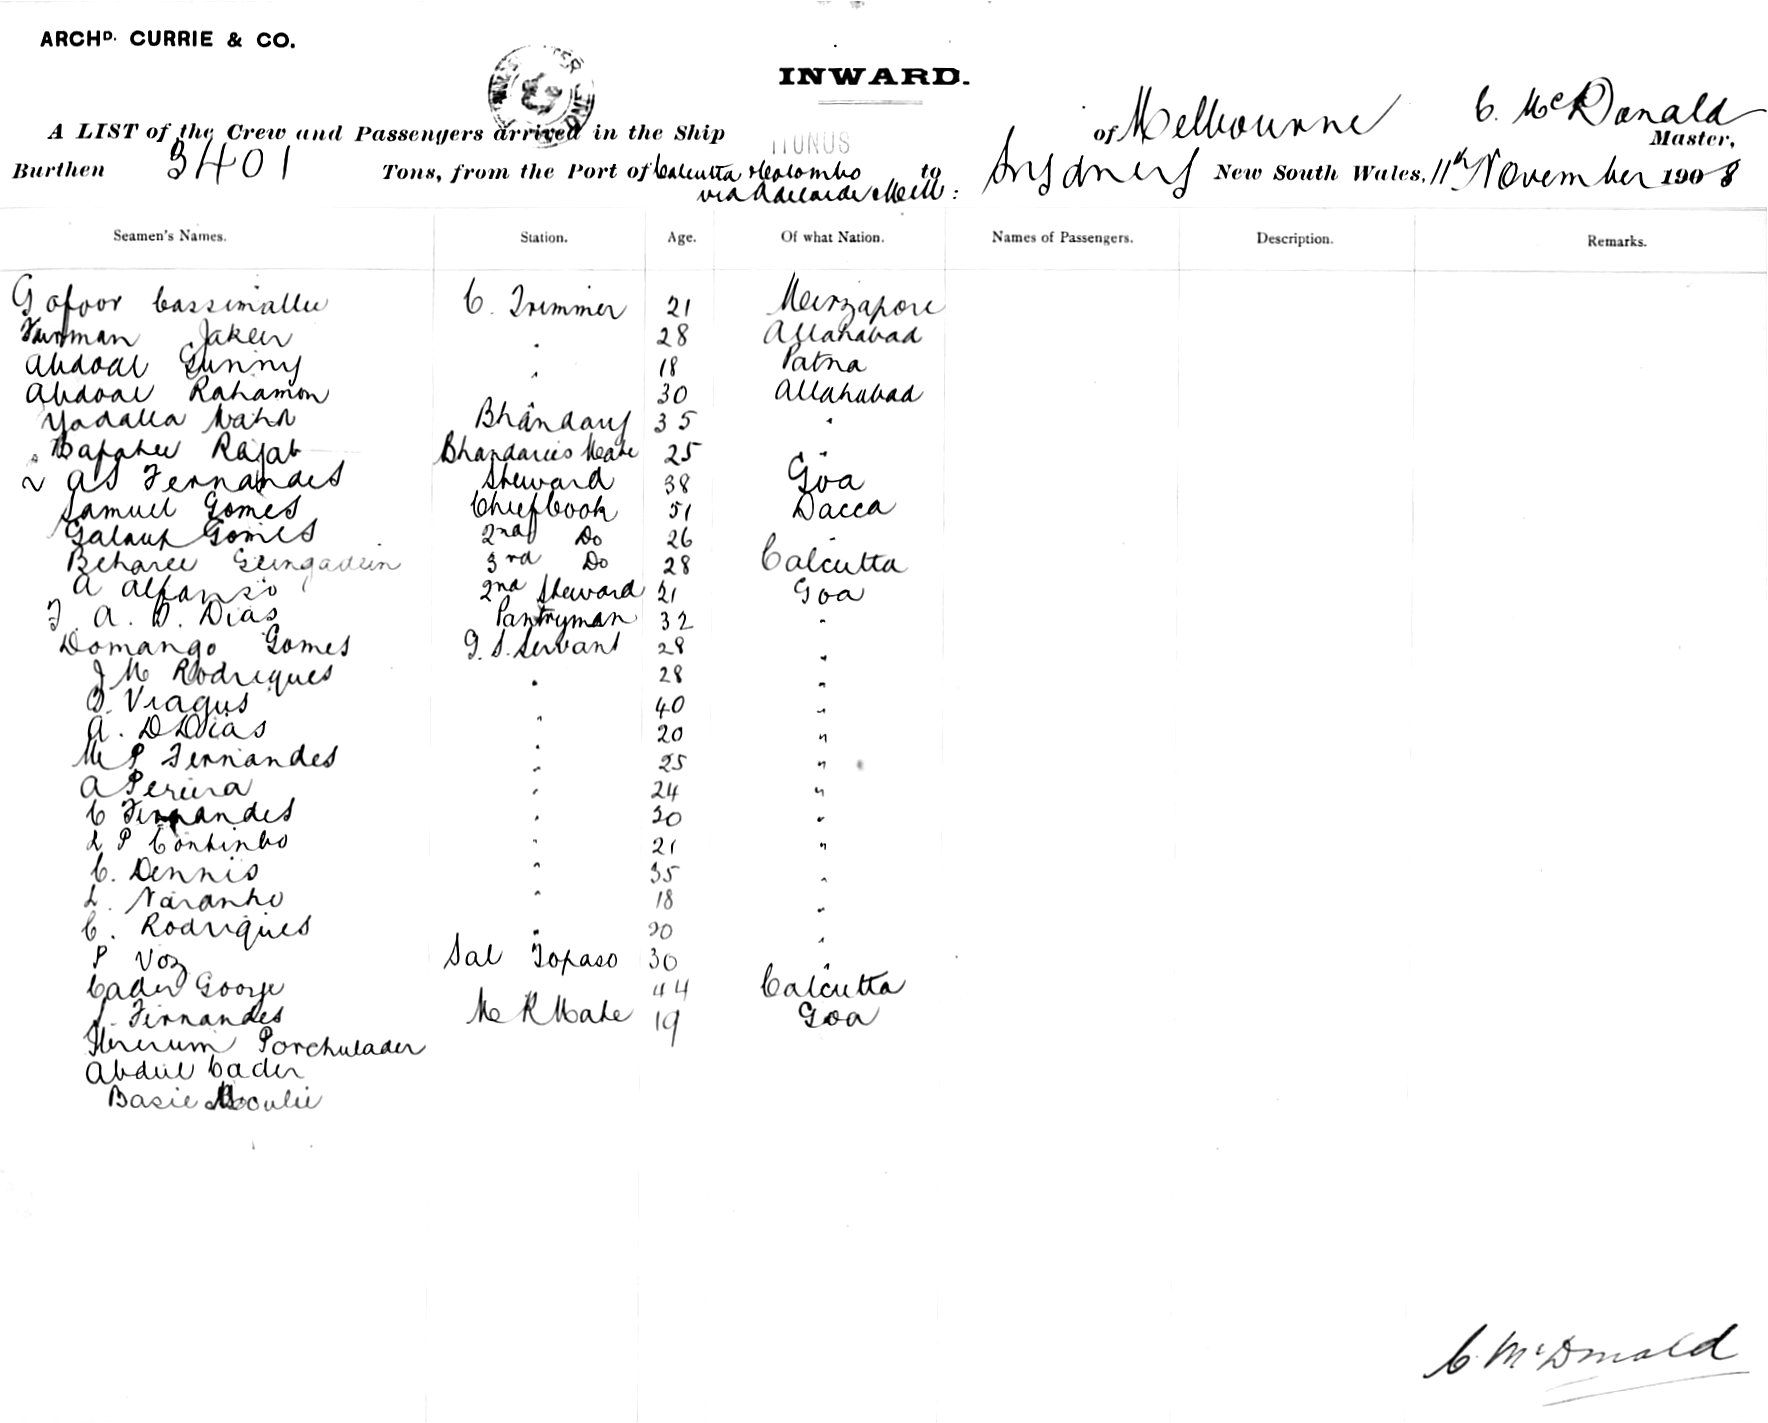 ARCHD. CURRIE & CO.
INWARD.
A LIST of the Crew and Passengers arrived in the Ship HONUS of Melbourne C. McDonald Master,
Burthen 3401 Tons, from the Port of Calcutta & Colombo to Sydney New South Wales, 11th November 1908
via Adelaide & Melb:
Seamen's Names. Station. Age. Of what Nation. Names of Passengers. Description. Remarks.
Gofoor Cassimallee C. Trimmer 21 Meirzapore
Furman Jaker " 28 Allahabad
Abdoal Gunny " 18 Patna
Abdoal Rahamon " 30 Allahabad
Yadalla Bhandary 35 "
Rajab Bhandaries Mate 25 "
2 AS Fernandes Steward 38 Goa
Samuel Gomes Chief Cook 51 Dacca
Gomes 2nd Do 26 "
Beharee 3rd Do 28 Calcutta
A Alfonso 2nd Steward 21 Goa
F. A. D. Dias Pantryman 32 "
Domango Gomes G. S. Servant 28 "
J M Rodrigues " 28 "
Viagus " 40 "
A. D Dias " 20 "
M P Fernandes " 25 "
A Pereira " 24 "
C Fernandes " 30 "
L P Continho " 21 "
C. Dennis " 35 "
L. Naranho " 18 "
C. Rodrigues " 20 "
P Voz Sal Topaso 30 "
Cader Goorje 44 Calcutta
S. Fernandes M R Mate 19 Goa
Porchulader
Abdul Cader
Basie
C. McDonald